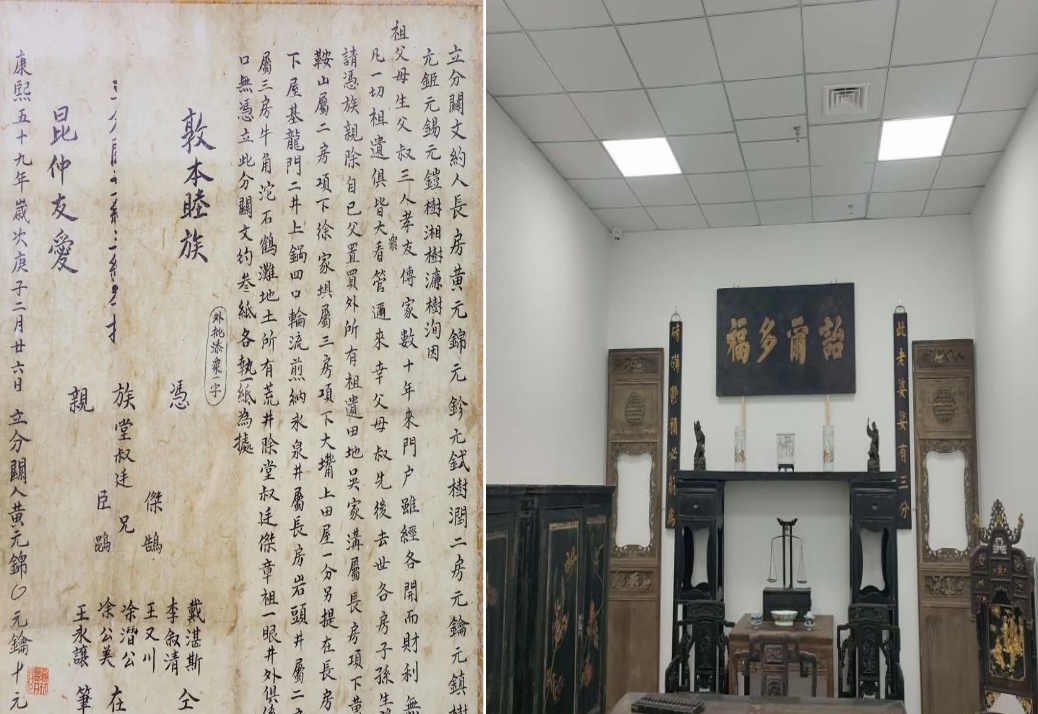 立分關文約人長房黃元錦元鈐元鉽樹潤二房元鑰元鎮樹
元鉅元錫元鎧樹湘樹濂樹洵因
祖父母生父叔三人孝友傳家數十年來門户雖經各開而財利無
凡一切祖遺俱皆大眾看管邇來幸父母叔先後去世各房子孫生
請憑族親除自己父置買外所有祖遺田地吳家溝屬長房項下黃
鞍山屬二房項下徐家塤屬三房項下大塆上田屋一分另提在長房
下屋基龍門二井上鍋四口輪流煎納永泉井屬長房岩頭井屬二房
屬三房牛角沱石鶴灘地土所有荒井除堂叔廷傑章祖一眼井外俱係
口無憑立此分關文約叁紙各執一紙為據
外批添眾一字
敦本睦族
憑
族堂叔廷傑
臣
兄鵠
鵾
親
戴湛斯
李叙清
王又川
凃潛公
凃公美
王永讓筆
仝
在
昆仲友愛
康熙五十九年歲次庚子二月廿六日 立分關人黃元錦〇元鑰十元
詒爾多福
磅礴鬱積必
此老婆娑有三分